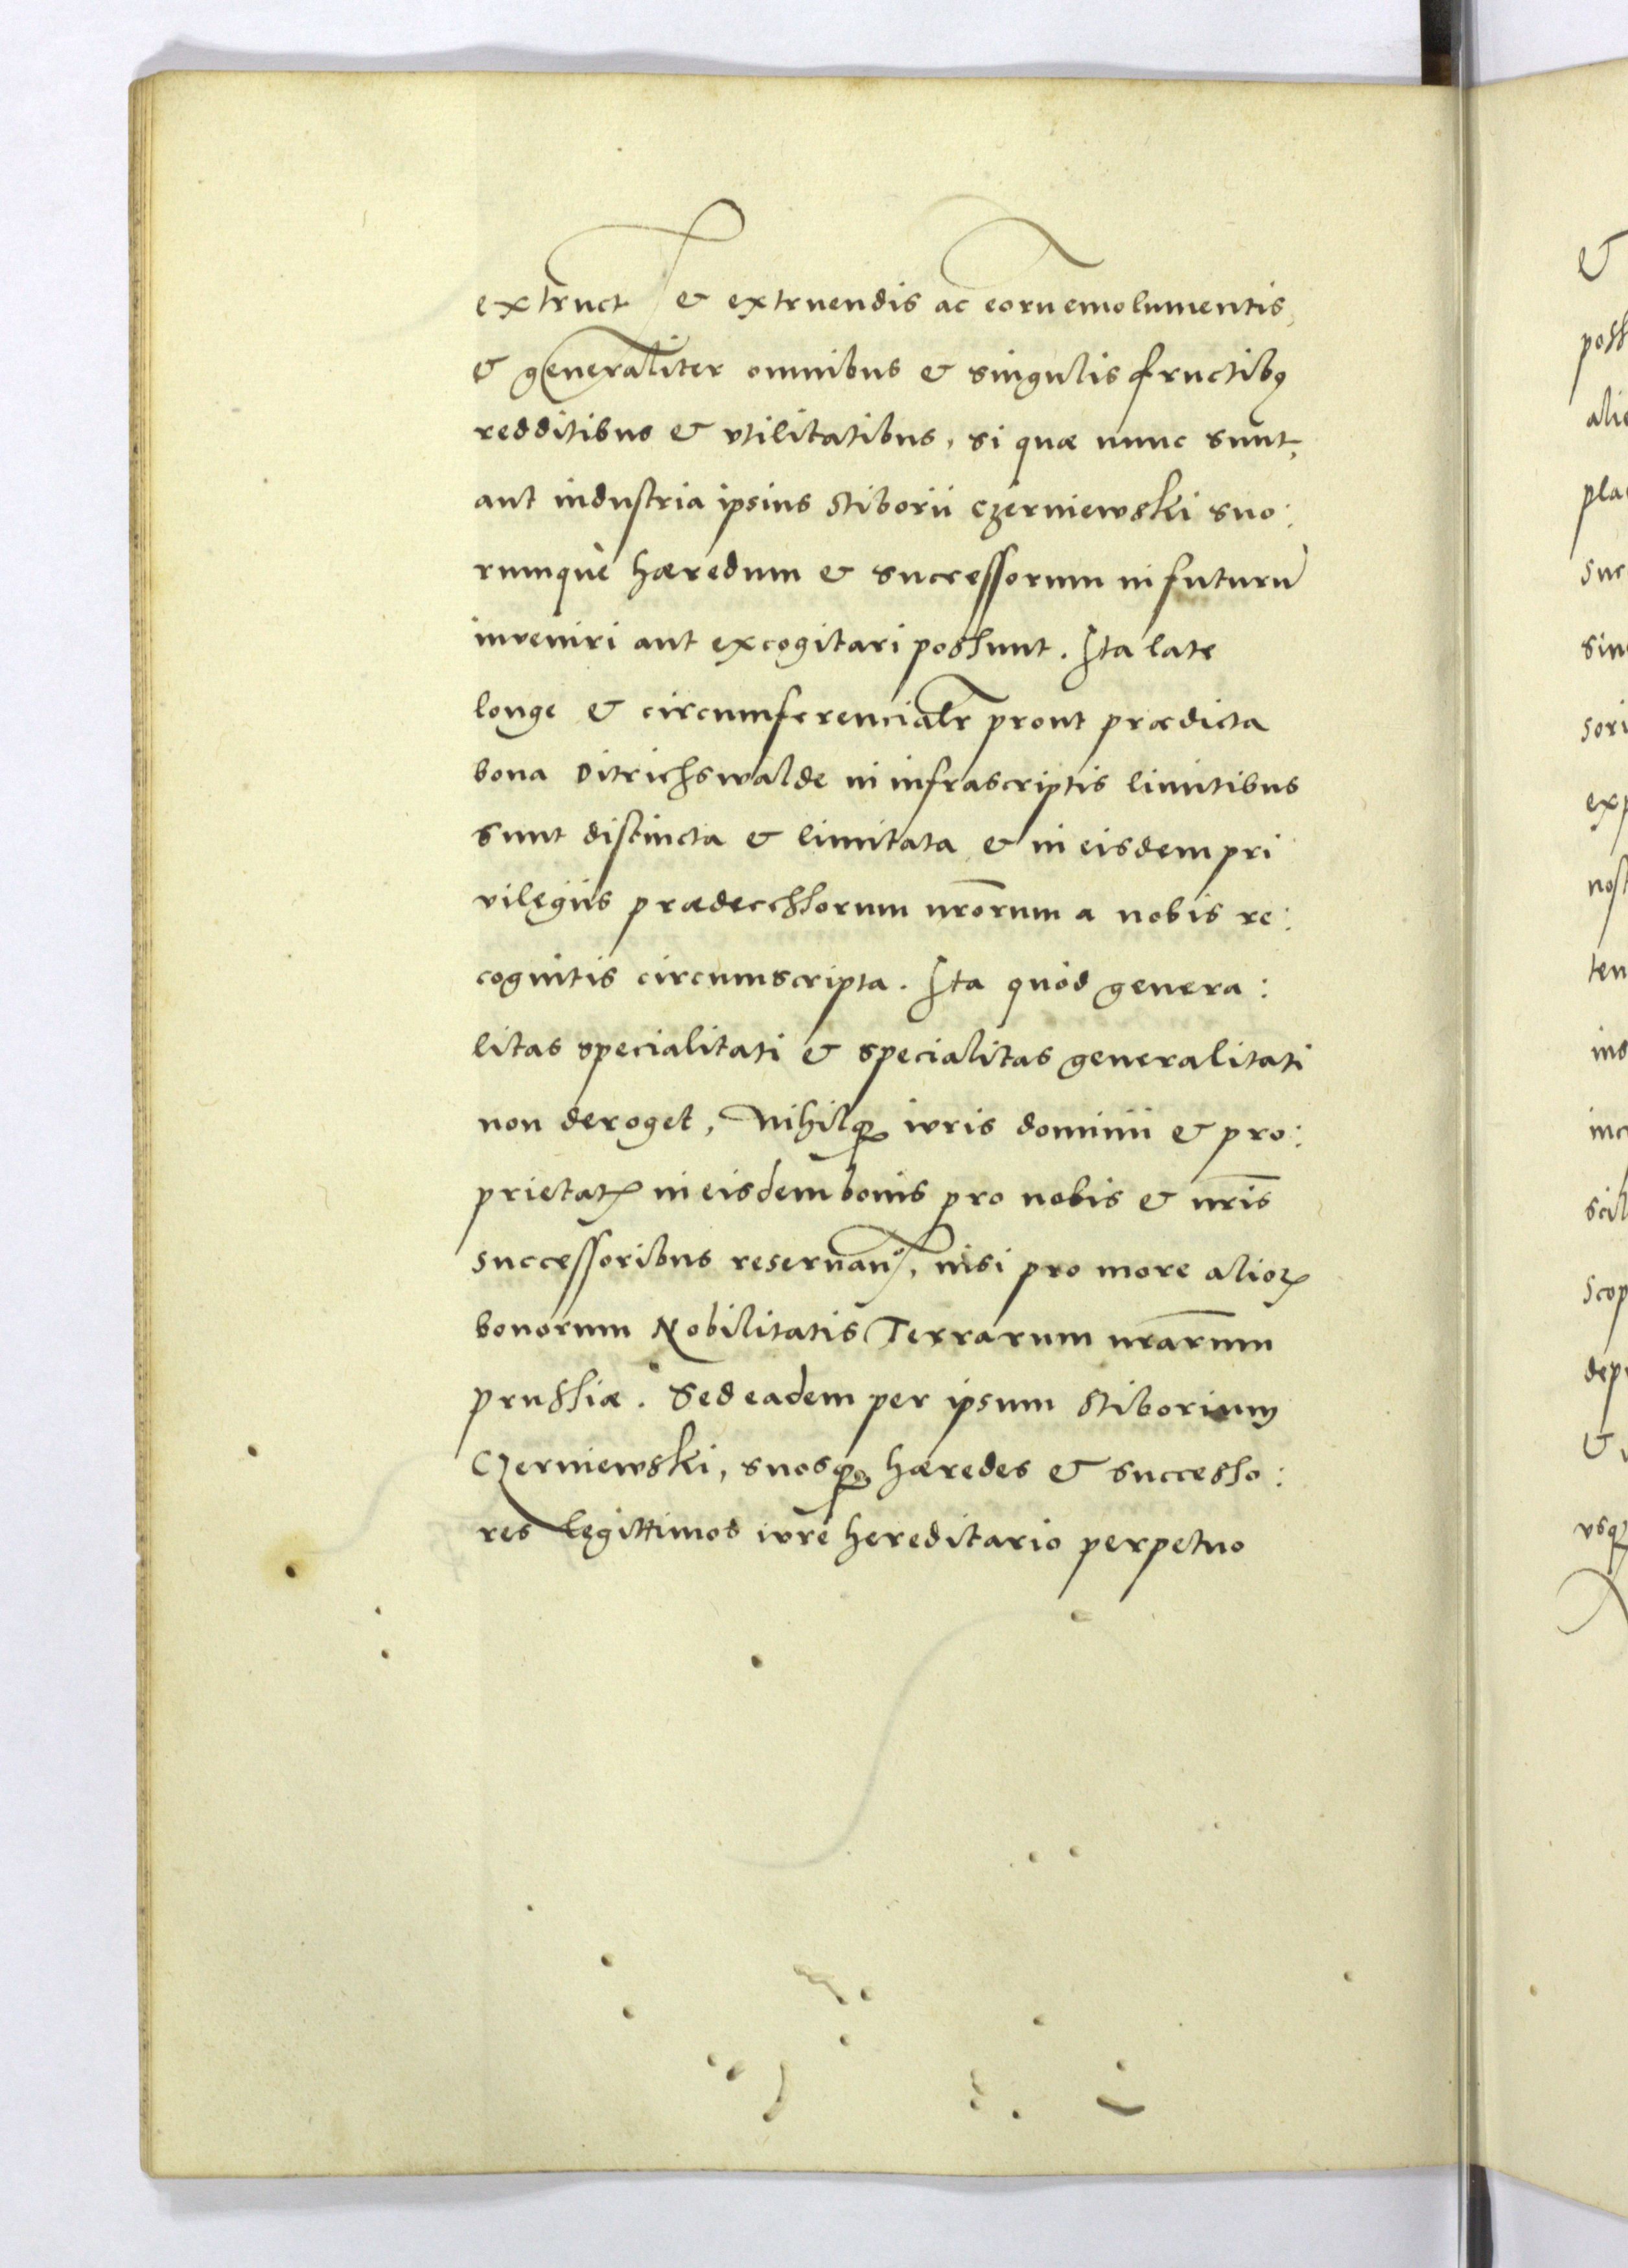 extruct & extruendis ac eoru emolumentis,
& generaliter omnibus & singulis fructibq
redditibus & vtilitatibus, si quæ nunc sunt,
aut industria ipsius Stiborii Czerniewski suo:
rumque hæredum & successorum in futurũ
inveniri aut excogitari possunt. Ita late
longe & circumferencialr prout prædicta
bona Ditrichswalde in infrascriptis limitibus
sunt distincta & limitata & in eisdem pri
vilegiis prædecessorum nrõrum a nobis re:
cognitis circumscripta. Ita quòd genera:
litas specialitati & specialitas generalitati
non deroget, Nihilqꝫ iuris dominii & pro:
prietatꝭ in eisdem bonis pro nobis & nrĩs
successoribus reseruan, nisi pro more alioꝝ
bonorum Nobilitatis Terrarum nrãrum
prussiæ. Sed eadem per ipsum Stiborium
Czerniewski, suosqꝫ hæredes & successo:
res legittimos iure hereditario perpetuo
&
poss
alie
pla
suc
sin
sori
exp
nost
ten
ins
inc
scil
scop
dep
&
vsqꝫ